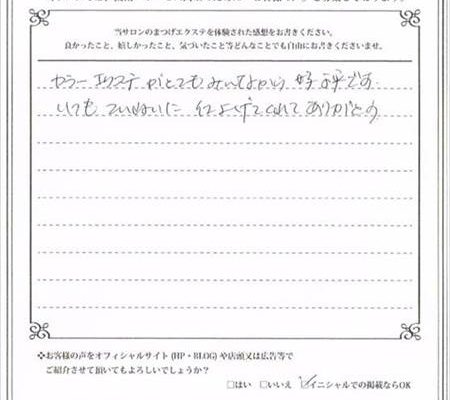 当サロンのまつげエクステを体験された感想をお書きください。
良かったこと、嬉しかったこと、気づいたこと等どんなことでも自由にお書きくださいませ。
カラーエクステがとてもみんなから好評です
いつもていねいに仕上げてくれてありがとう
❖お客様の声をオフィシャルサイト(HP・BLOG)や店頭又は広告等で
ご紹介させて頂いてもよろしいでしょうか？
□はい □いいえ ☑イニシャルでの掲載ならOK